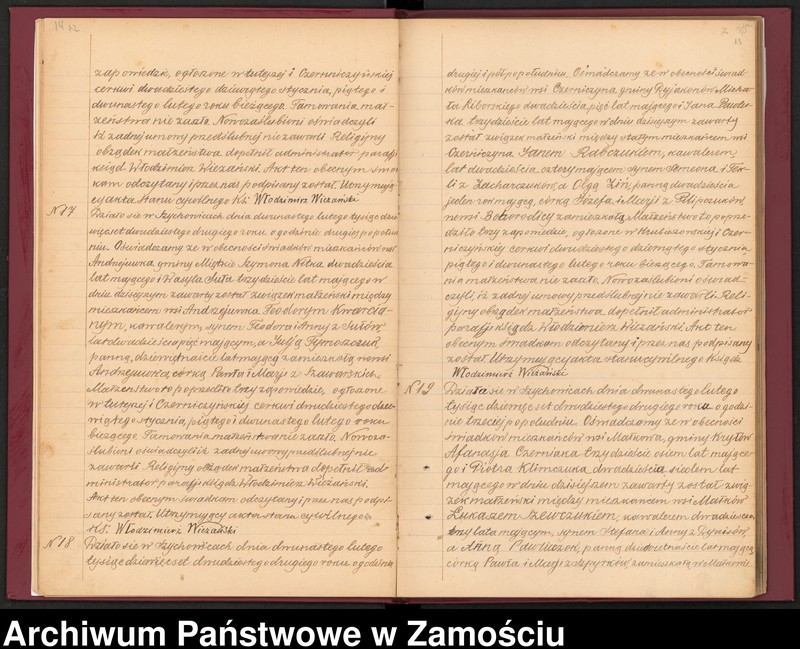 14 12
zapowiedzie, ogłoszone w tutejszej i Czerniczyńskiej
cerkwi dwudziestego dziewiątego stycznia, piątego i
dwunastego lutego roku bieżącego. Tamowania mał-
żeństwa nie zaszło. Nowozaślubieni oświadczyli
iż żadnej umowy przedślubnej nie zawarli. Religijny
obrządek małżeństwa dopełnił administrator parafji
ksiądz Włodzimierz Wieżański. Akt ten obecnym świad-
kom odczytany i przez nas podpisany został. Utrzymują-
cy akta stanu cywilnego Ks: Włodzimierz Wieżański
N 17 Działo się w Szychowicach dnia dwunastego lutego tysiąc dzie-
więćset dwudziestego drugiego roku o godzinie drugiej popołud-
niu. Oświadczamy że w obecności świadków mieszkańców wsi
Andrzejówka gminy Miętkie Szymona Notka dwadzieścia
lat mającego i Wasyla Suła trzydzieście lat mającego w
dniu dzisiejszym zawarty został związek małżeński między
mieszkańcem wsi Andrzejówka Teodorym Kwarcia-
nym, kawalerem, synem Teodora i Anny z Sułów
lat dwadzieścia pięć mającym, a Julją Tymoszczuk
panną, dziewiętnaście lat mającą zamieszkałą we wsi
Andrzejówka, córką Pawła i Marji z Szawarskich.
Małżeństwo to poprzedziło trzy zapowiedzie, ogłoszone
w tutejszej i Czerniczyńskiej cerkwi dwudziestego dzie-
wiątego stycznia, piątego i dwunastego lutego roku
bieżącego. Tamowania małżeństwa nie zaszło. Nowoza-
ślubieni oświadczyli iż żadnej umowy przedślubnej nie
zawarli. Religijny obrządek małżeństwa dopełnił ad-
ministrator parafji ksiądz Włodzimierz Wieżański.
Akt ten obecnym świadkom odczytany i przez nas podpi-
sany został. Utrzymujący akta stanu cywilnego
Ks: Włodzimierz Wieżański
N 18 Działo się w Szychowicach dnia dwunastego lutego
tysiąc dziewięćset dwudziestego drugiego roku o godzinie
13
drugiej i pół popołudniu. Oświadczamy że w obecności świad-
ków mieszkańców wsi Czerniczyna gminy Dyjakonów Micha-
ła Kiborskiego dwadzieścia pięć lat mającego i Jana
trzydzieście lat mającego w dniu dzisiejszym zawarty
został związek małżeński między stałym mieszkańcem wsi
Czerniczyna Janem Rabczukiem, kawalerem,
lat dwadzieścia cztery mającym synem Semena i Tek-
li z Zacharczuków, a Olgą Ziń, panną dwadzieścia
jeden rok mającą, córką Józefa i Marji z Filipczuków
we wsi Bohorodicy zamieszkałą. Małżeństwo to poprze-
dziło trzy zapowiedzie, ogłoszone w Hrubieszowskiej i Czer-
niczyńskiej cerkwi dwudziestego dziewiątego stycznia
piątego i dwunastego lutego roku bieżącego. Tamowa-
nia małżeństwa nie zaszło. Nowozaślubieni oświad-
czyli, iż żadnej umowy przedślubnej nie zawarli. Reli-
gijny obrządek małżeństwa dopełnił administrator
parafji ksiądz Włodzimierz Wieżański. Akt ten
obecnym świadkom odczytany i przez nas podpisany
został. Utrzymujący akta stanu cywilnego Ksiądz
Włodzimierz Wieżański
N 19 Działo się w Szychowicach dnia dwunastego lutego
tysiąc dziewięćset dwudziestego drugiego roku o godzi-
nie trzeciej popołudniu. Oświadczamy że w obecności
świadków mieszkańców wsi Małkowa, gminy Kryłów
Afanazja Czerniaka trzydzieście osiem lat mające-
go i Piotra Klimczuka dwadzieścia siedem lat
mającego w dniu dzisiejszem zawarty został zwią-
zek małżeński między mieszkańcem wsi Małków
Łukaszem Szewczukiem, kawalerem dwadzieścia
trzy lata mającym, synem Stefana i Anny z Dynisów,
a Anną Pawluczok, panną dziewiętnaście lat mającą
córką Pawła i Marji z Szpytków, zamieszkałą w Małkowie.
Archiwum Państwowe w Zamościu